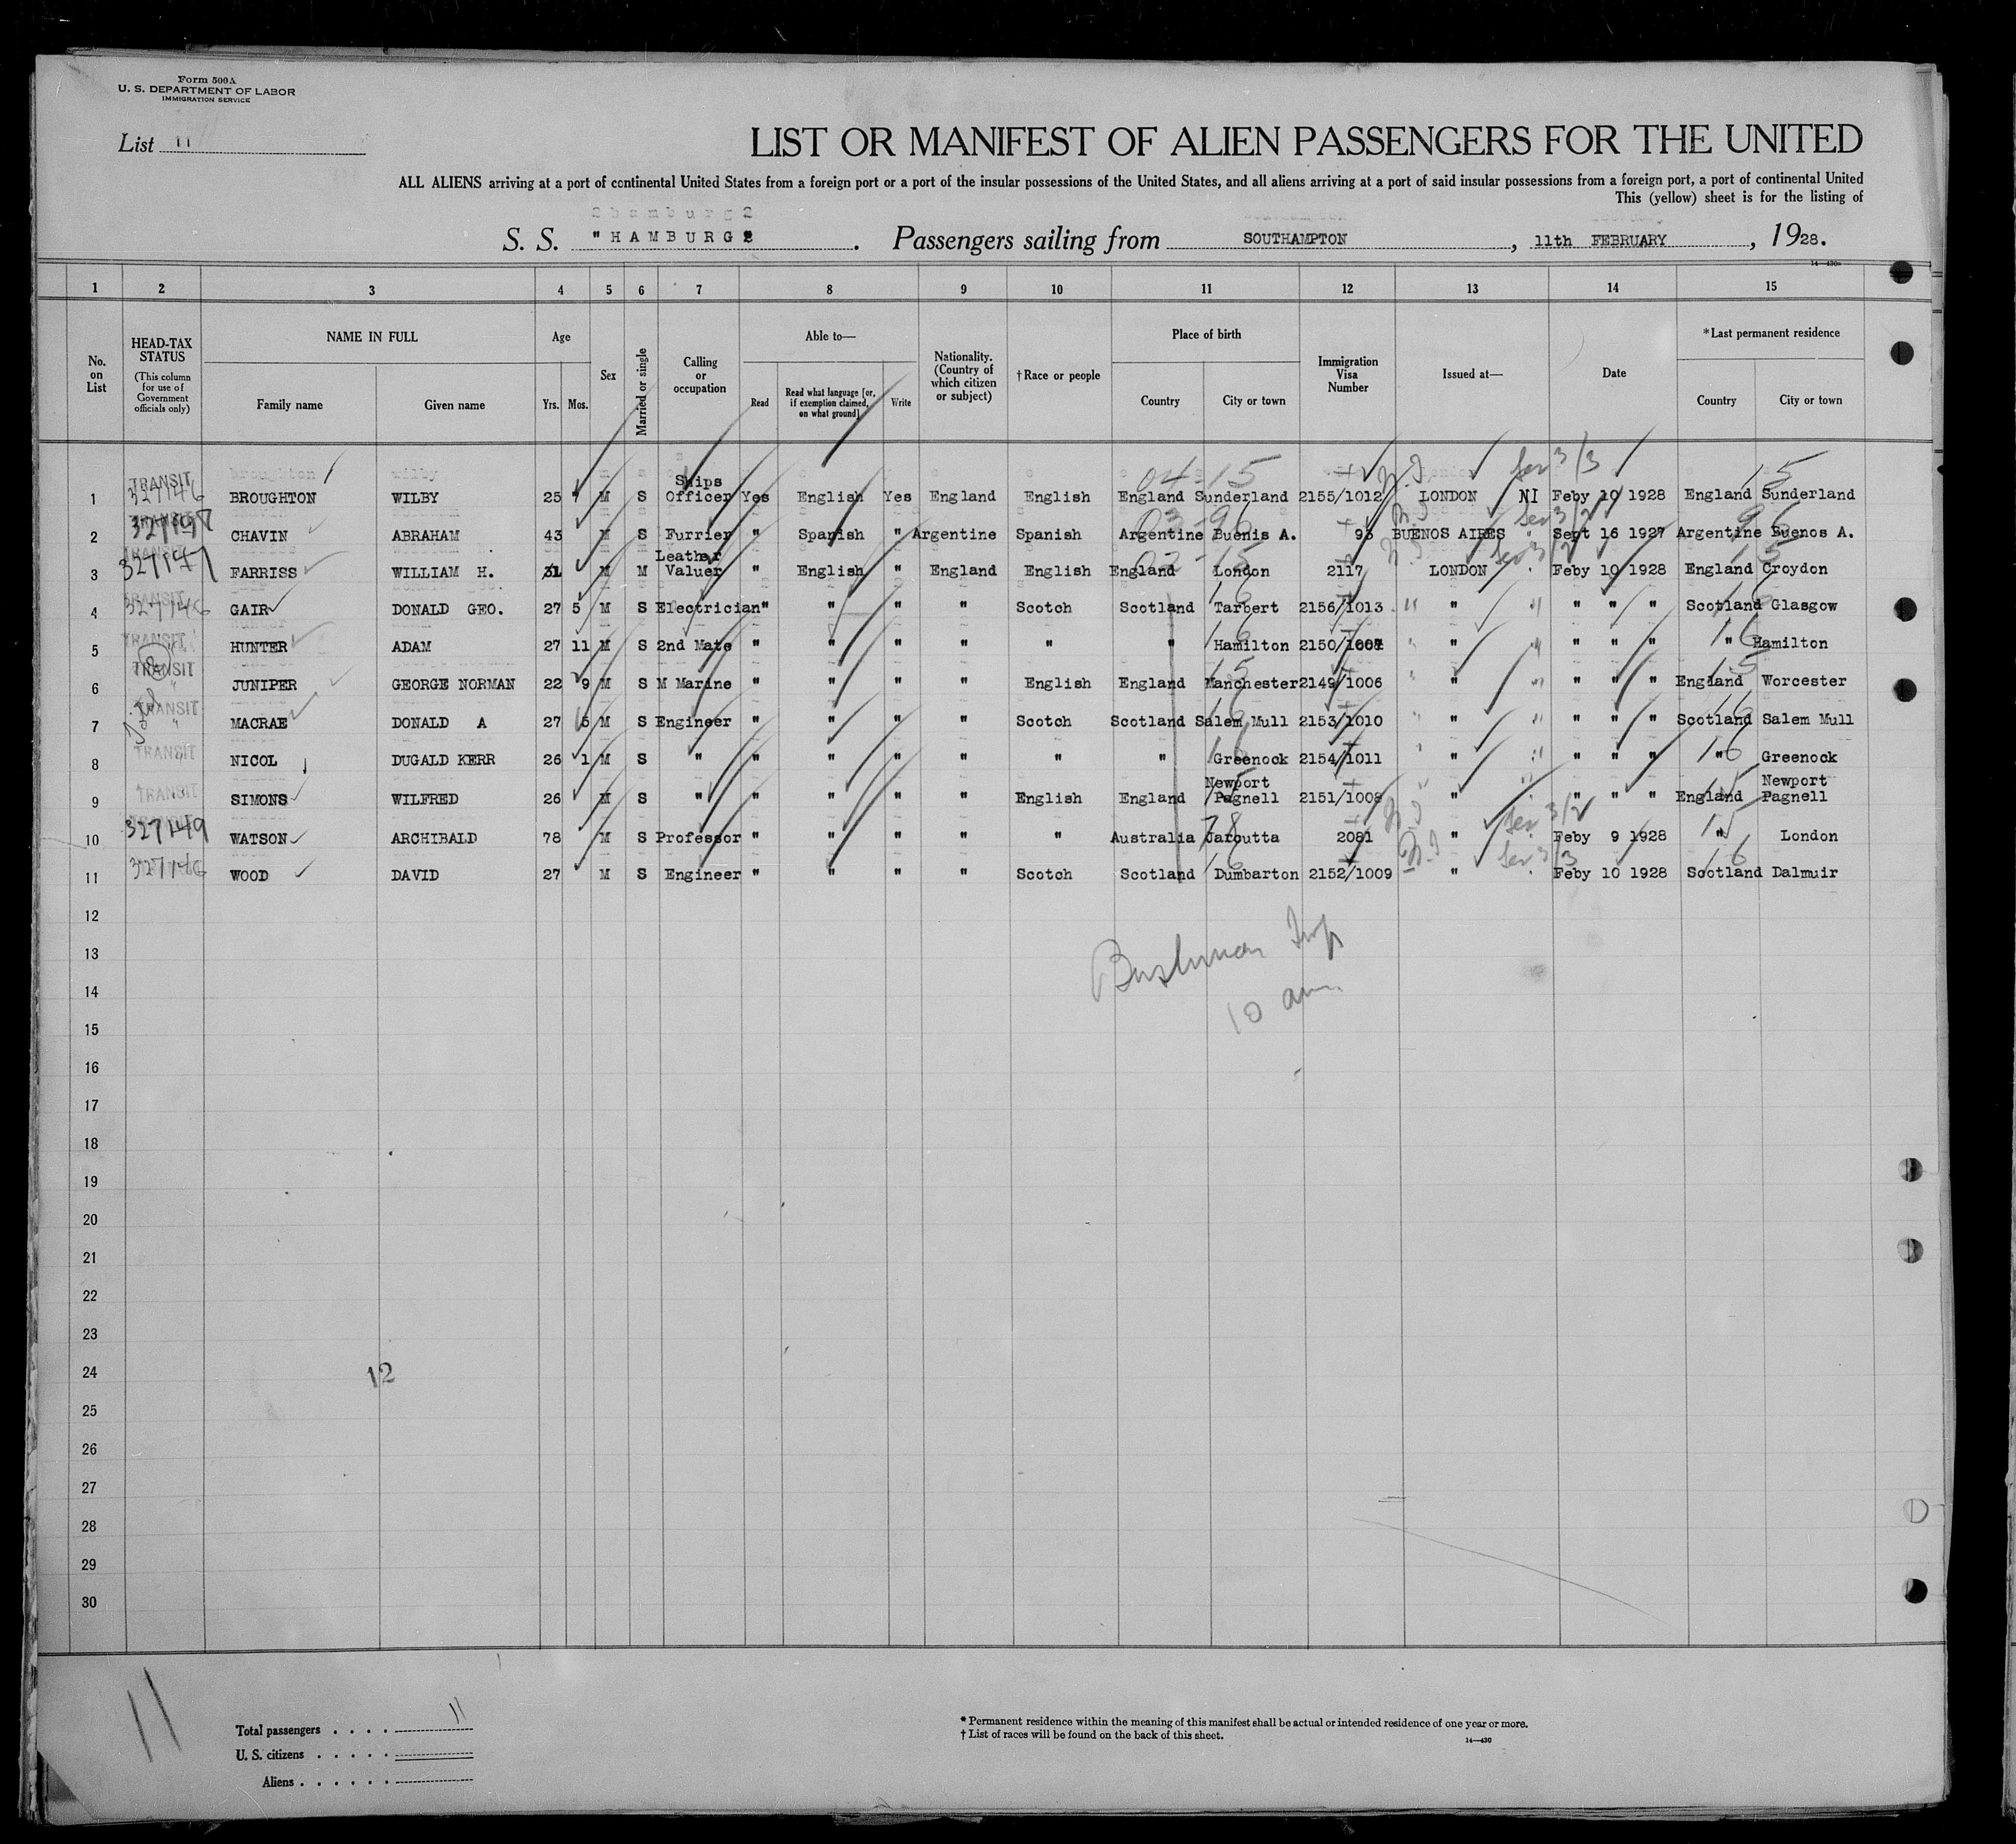 Form 500A
U. S. DEPARTMENT OF LABOR
IMMIGRATION SERVICE
List 11
LIST OR MANIFEST OF ALIEN PASSENGERS FOR THE UNITED
ALL ALIENS arriving at a port of continental United States from a foreign port or a port of the insular possessions of the United States, and all aliens arriving at a port of said insular possessions from a foreign port, a port of continental United
This (yellow) sheet is for the listing of
S. S. "HAMBURG2 . Passengers sailing from SOUTHAMPTON , 11th FEBRUARY , 1928.
1 2 3 4 5 6 7 8 9 10 11 12 13 14 15
No. on List
HEAD-TAX STATUS (This column for use of Government officials only)
NAME IN FULL Family name Given name
Age Yrs. Mos.
Sex
Married or single
Calling or occupation
Able to— Read Read what language [or, if exemption claimed, on what ground] Write
Nationality. (Country of which citizen or subject)
† Race or people
Place of birth Country City or town
Immigration Visa Number
Issued at—
Date
*Last permanent residence Country City or town
1 TRANSIT 327146 BROUGHTON WILBY 25 M S Ships Officer Yes English Yes England English England Sunderland 2155/1012 LONDON NI Feby 10 1928 England Sunderland
2 CHAVIN ABRAHAM 43 M S Furrier " Spanish " Argentine Spanish Argentine Buenis A. 93 BUENOS AIRES Sept 16 1927 Argentine Buenos A.
3 FARRISS WILLIAM H. 31 M M Leather Valuer " English " England English England London 2117 LONDON Feby 10 1928 England Croydon
4 TRANSIT 327146 GAIR DONALD GEO. 27 5 M S Electrician " " " " Scotch Scotland Tarbert 2156/1013 " " " " Scotland Glasgow
5 TRANSIT HUNTER ADAM 27 11 M S 2nd Mate " " " " " " Hamilton 2150/1007 " " " " " Hamilton
6 TRANSIT JUNIPER GEORGE NORMAN 22 9 M S M Marine " " " " English England Manchester 2149/1006 " " " " England Worcester
7 TRANSIT MACRAE DONALD A 27 5 M S Engineer " " " " Scotch Scotland Salem Mull 2153/1010 " " " " Scotland Salem Mull
8 TRANSIT NICOL DUGALD KERR 26 1 M S " " " " " " " Greenock 2154/1011 " " " " " Greenock
9 TRANSIT SIMONS WILFRED 26 M S " " " " " English England Newport Pagnell 2151/1008 " " " " England Newport Pagnell
10 327149 WATSON ARCHIBALD 78 M S Professor " " " " " Australia Jarcutta 2081 " Feby 9 1928 " London
11 327146 WOOD DAVID 27 M S Engineer " " " " Scotch Scotland Dumbarton 2152/1009 " Feby 10 1928 Scotland Dalmuir
12
13
14
10 am
15
16
17
18
19
20
21
22
23
24
12
25
26
27
28
29
30
11
Total passengers . . . . 11
U. S. citizens . . . . .
Aliens . . . . . .
* Permanent residence within the meaning of this manifest shall be actual or intended residence of one year or more.
† List of races will be found on the back of this sheet.
14—430